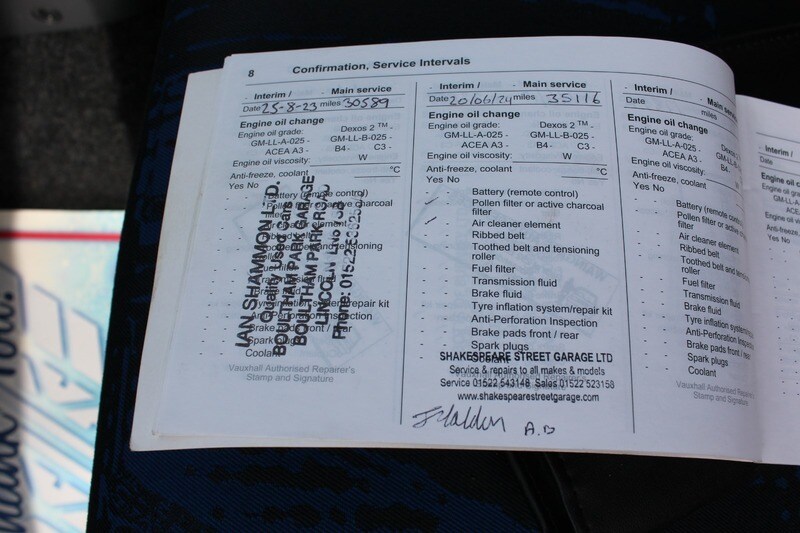 8 Confirmation, Service Intervals
- Interim / - Main service
Date 25-8-23 miles 30589
Engine oil change
Engine oil grade: Dexos 2 TM -
GM-LL-A-025 - GM-LL-B-025 -
ACEA A3 - B4 - C3 -
Engine oil viscosity: W
Anti-freeze, coolant °C
Yes No
- - Battery (remote control)
- - Pollen filter or active charcoal
filter
- - Air cleaner element
- - Ribbed belt
- - Toothed belt and tensioning
roller
- - Fuel filter
- - Transmission fluid
- - Brake fluid
- - Tyre inflation system/repair kit
- - Anti-Perforation Inspection
- - Brake pads front / rear
- - Spark plugs
- - Coolant
Vauxhall Authorised Repairer's
Stamp and Signature
IAN SHAMMON LTD.
Quality Used Cars
BOULTHAM PARK GARAGE
BOULTHAM PARK ROAD
LINCOLN
Phone: 01522
- Interim / - Main service
Date 20/06/24 miles 35116
Engine oil change
Engine oil grade: Dexos 2 TM -
GM-LL-A-025 - GM-LL-B-025 -
ACEA A3 - B4 - C3 -
Engine oil viscosity: W
Anti-freeze, coolant °C
Yes No
- - Battery (remote control)
- Pollen filter or active charcoal
filter
- Air cleaner element
- - Ribbed belt
- - Toothed belt and tensioning
roller
- - Fuel filter
- - Transmission fluid
- - Brake fluid
- - Tyre inflation system/repair kit
- - Anti-Perforation Inspection
- - Brake pads front / rear
- - Spark plugs
- - Coolant
SHAKESPEARE STREET GARAGE LTD
Service & repairs to all makes & models
Service 01522 543148 Sales 01522 523158
www.shakespearestreetgarage.com
A.B
- Interim / - Main
Date miles
Engine oil change
Engine oil grade:
GM-LL-A-025 - GM-LL-B
ACEA A3 - B4 -
Engine oil viscosity: W
Anti-freeze, coolant
Yes No
- - Battery (remote control)
- - Pollen filter or active
filter
- - Air cleaner element
- - Ribbed belt
- - Toothed belt and tensioning
roller
- - Fuel filter
- - Transmission fluid
- - Brake fluid
- - Tyre inflation system
- - Anti-Perforation
- - Brake pads front / rear
- - Spark plugs
- - Coolant
Vauxhall Authorised Repairer's
Stamp and Signature
- Interim /
Date
Engine oil
Engine oil grade:
GM-LL-A-025
ACEA
Engine oil
Anti-freeze,
Yes No